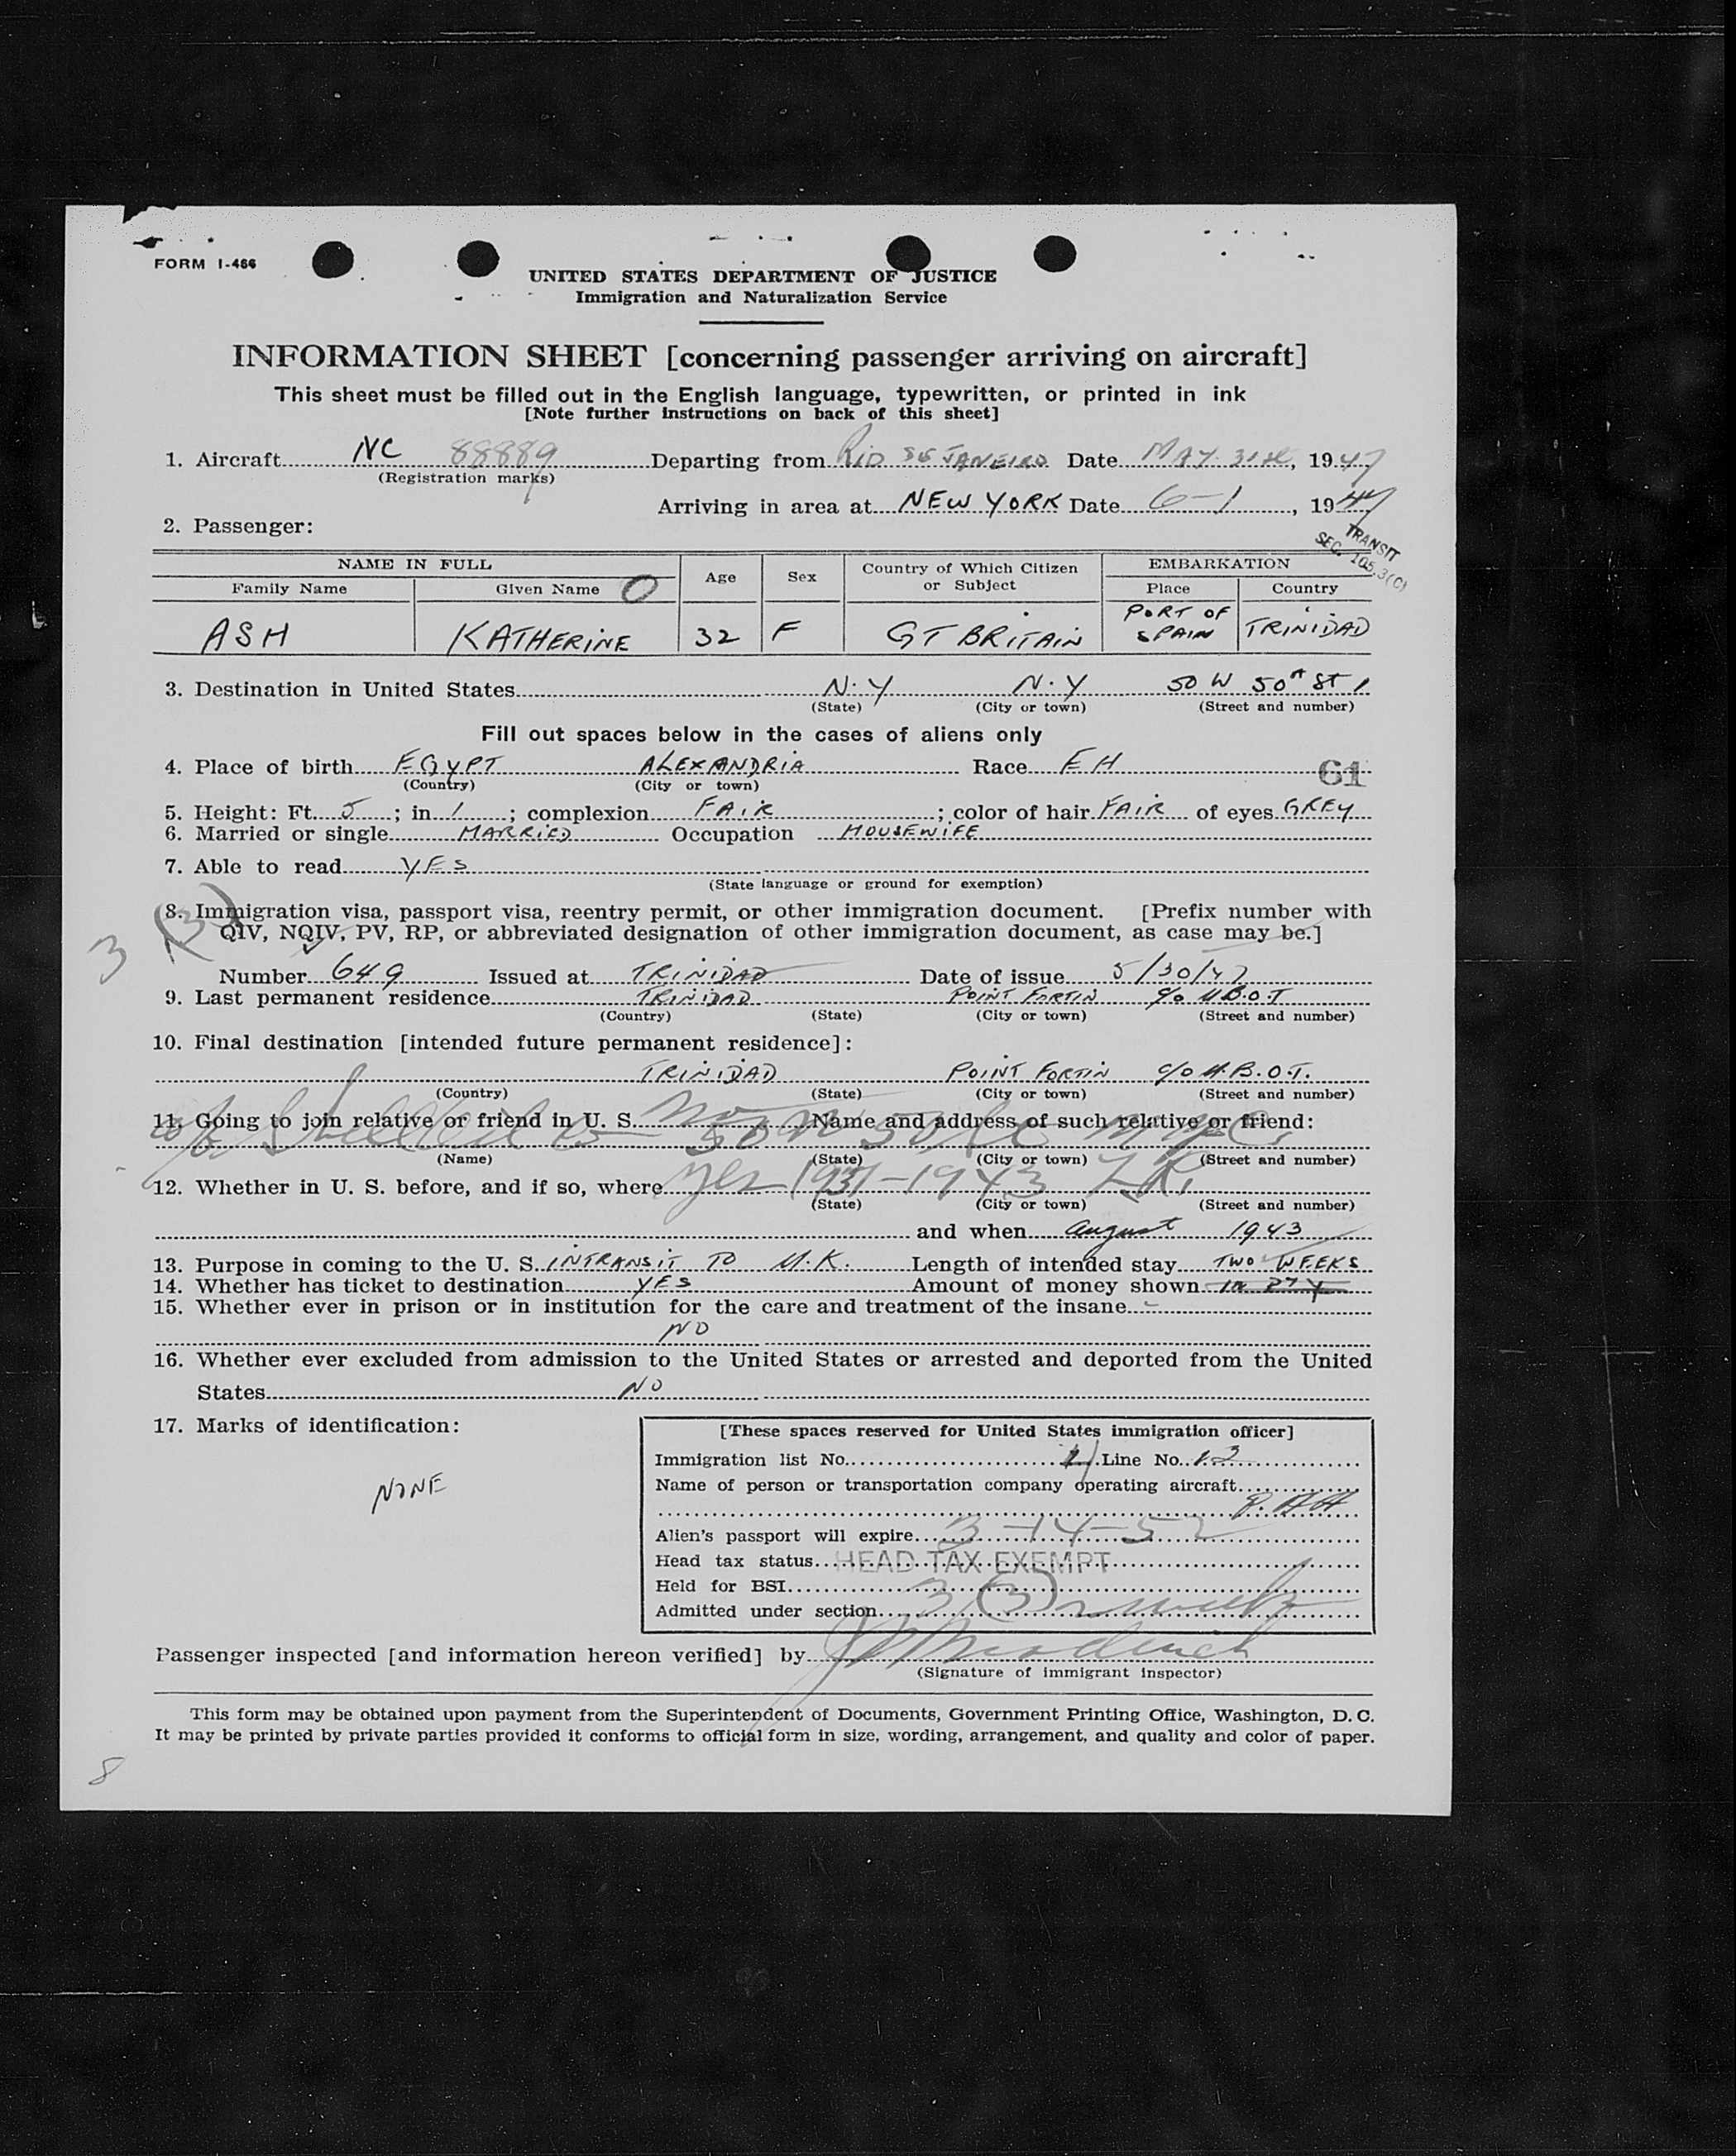 FORM I-466
UNITED STATES DEPARTMENT OF JUSTICE
Immigration and Naturalization Service
INFORMATION SHEET [concerning passenger arriving on aircraft]
This sheet must be filled out in the English language, typewritten, or printed in ink
[Note further instructions on back of this sheet]
1. Aircraft NC 88889 Departing from RIO DE JANEIRO Date MAY 31st, 1947
(Registration marks)
Arriving in area at NEW YORK Date 6-1, 1947
2. Passenger:
TRANSIT
SEC. 105.3(C)
NAME IN FULL Age Sex Country of Which Citizen or Subject EMBARKATION
Family Name Given Name Place Country
ASH KATHERINE 32 F GT BRITAIN PORT OF SPAIN TRINIDAD
3. Destination in United States N.Y N.Y 50 W 50th St
(State) (City or town) (Street and number)
Fill out spaces below in the cases of aliens only
4. Place of birth EGYPT ALEXANDRIA Race EH
(Country) (City or town)
61
5. Height: Ft. 5; in 1; complexion FAIR; color of hair FAIR of eyes GREY
6. Married or single MARRIED Occupation HOUSEWIFE
7. Able to read YES
(State language or ground for exemption)
8. Immigration visa, passport visa, reentry permit, or other immigration document. [Prefix number with
QIV, NQIV, PV, RP, or abbreviated designation of other immigration document, as case may be.]
3 (3)
Number 649 Issued at TRINIDAD Date of issue 5/30/47
9. Last permanent residence TRINIDAD POINT FORTIN c/o U.B.O.T
(Country) (State) (City or town) (Street and number)
10. Final destination [intended future permanent residence]:
TRINIDAD POINT FORTIN c/o U.B.O.T.
(Country) (State) (City or town) (Street and number)
11. Going to join relative or friend in U. S. No Name and address of such relative or friend:
50 W 50 St NYC
(Name) (State) (City or town) (Street and number)
12. Whether in U. S. before, and if so, where yes 1937-1943
(State) (City or town) (Street and number)
and when August 1943
13. Purpose in coming to the U. S. INTRANSIT TO U.K. Length of intended stay TWO WEEKS
14. Whether has ticket to destination YES Amount of money shown
15. Whether ever in prison or in institution for the care and treatment of the insane
NO
16. Whether ever excluded from admission to the United States or arrested and deported from the United
States NO
17. Marks of identification:
NONE
[These spaces reserved for United States immigration officer]
Immigration list No. Line No. 12
Name of person or transportation company operating aircraft
Alien's passport will expire 3-14-52
Head tax status HEAD TAX EXEMPT
Held for BSI
Admitted under section 3 (3) 2 weeks
Passenger inspected [and information hereon verified] by
(Signature of immigrant inspector)
This form may be obtained upon payment from the Superintendent of Documents, Government Printing Office, Washington, D. C.
It may be printed by private parties provided it conforms to official form in size, wording, arrangement, and quality and color of paper.
8